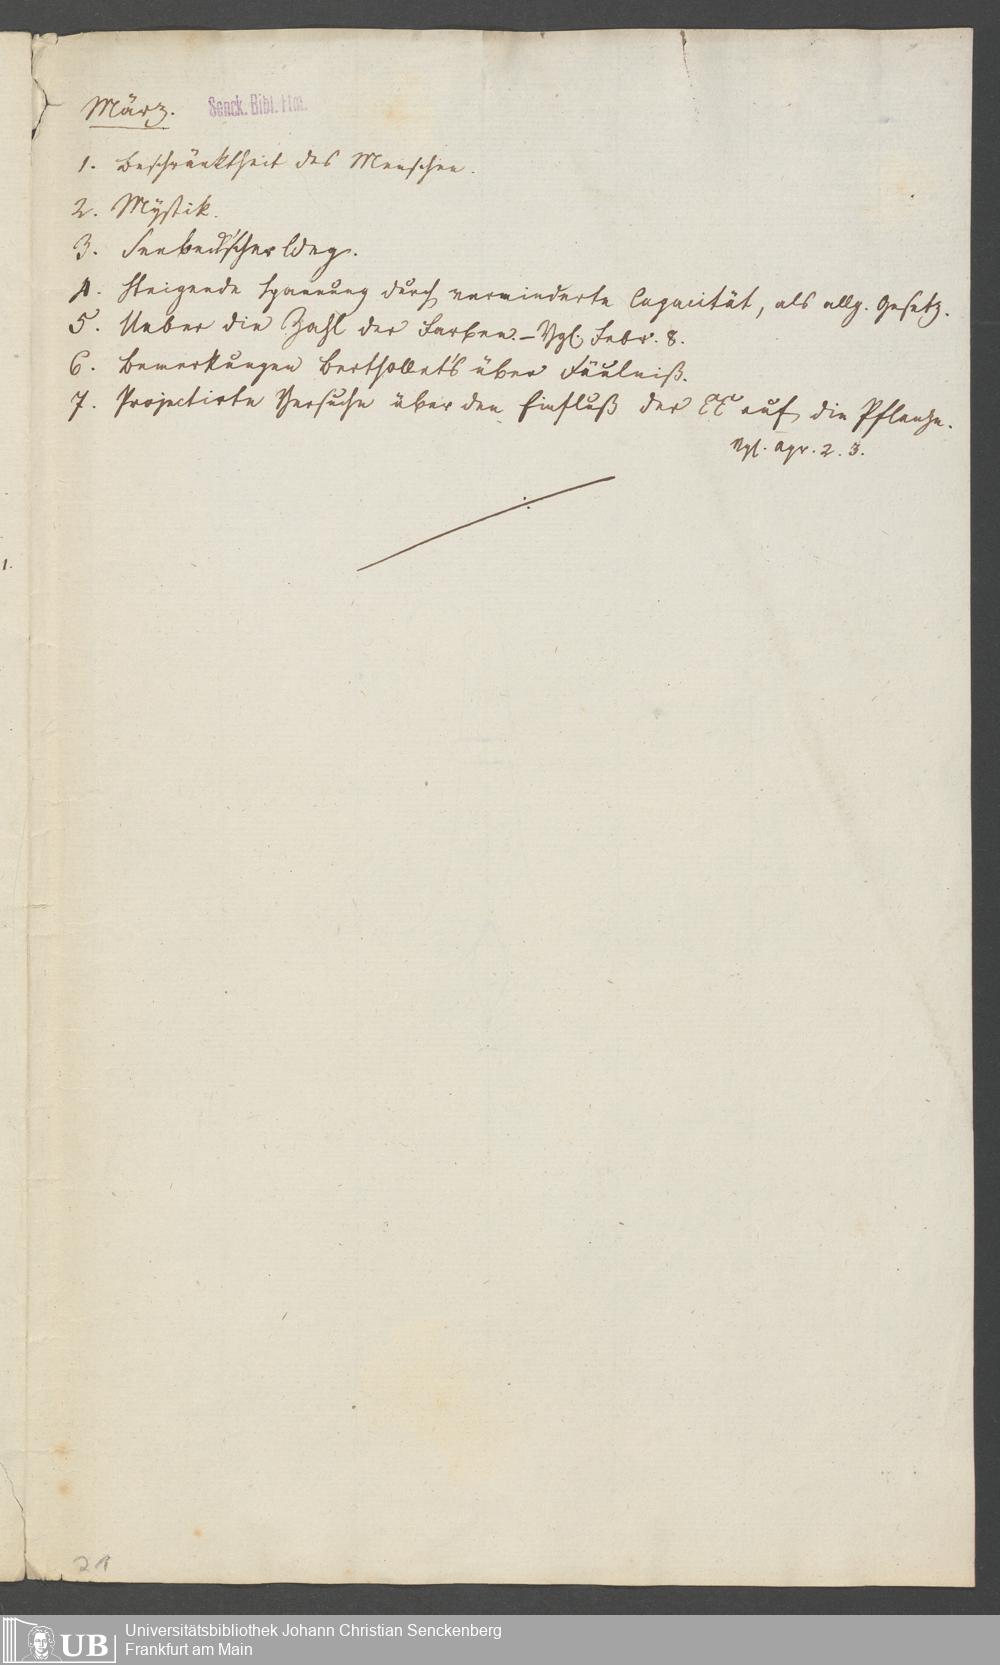 März.
Senck. Bibl. Ffm.
1. Beschränktheit des Menschen.
2. Mystik.
3. Seebeck'scher Weg.
4. Steigende Spannung durch verminderte Capacität, als allg. Gesetz.
5. Ueber die Zahl der Farben. – Vgl. Febr. 8.
6. Bemerkungen Berthollet's über Fäulniß.
7. Projectirte Versuche über den Einfluß der auf die Pflanze.
Vgl. Apr. 2. 3.
1.
21
UB
Universitätsbibliothek Johann Christian Senckenberg
Frankfurt am Main